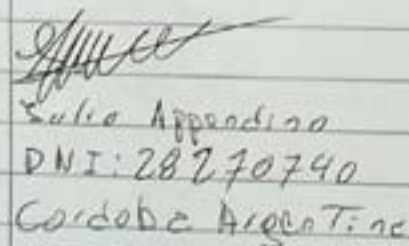 Julio Appendino
DNI: 28270740
Cordoba Argentina